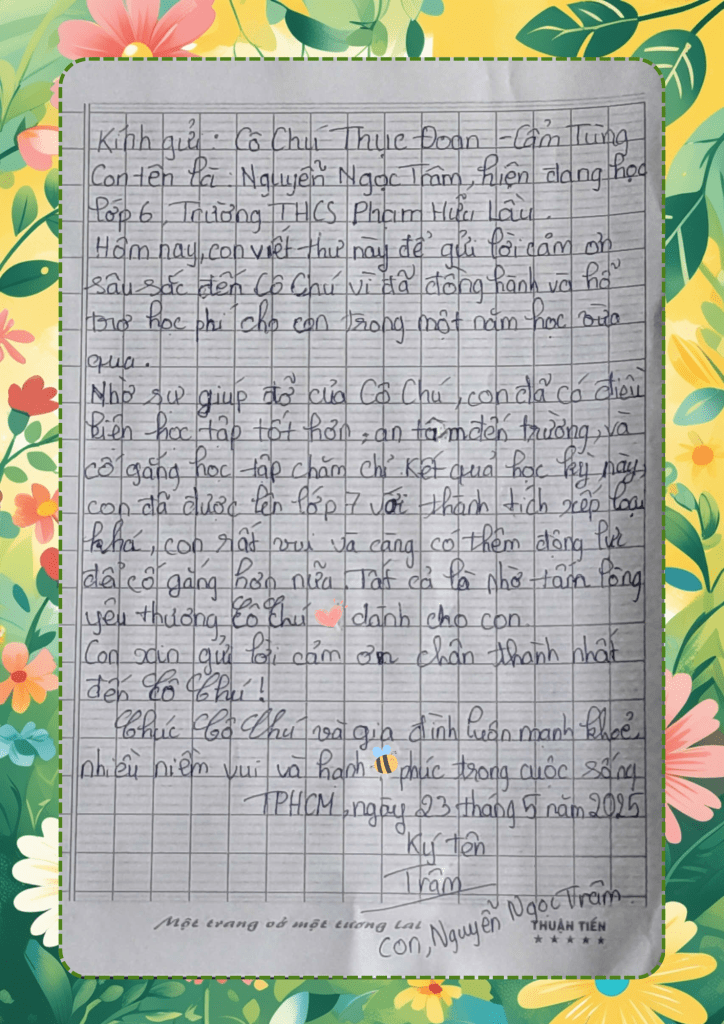 Kính gửi : Cô Chú Thục Đoan - Cẩm Tùng
Con tên là : Nguyễn Ngọc Trâm, hiện đang học
lớp 6, Trường THCS Phạm Hữu Lầu.
Hôm nay, con viết thư này để gửi lời cảm ơn
sâu sắc đến Cô Chú vì đã đồng hành và hỗ
trợ học phí cho con trong một năm học vừa
qua.
Nhờ sự giúp đỡ của Cô Chú, con đã có điều
kiện học tập tốt hơn, an tâm đến trường, và
cố gắng học tập chăm chỉ. Kết quả học kỳ này,
con đã được lên lớp 7 với thành tích xếp loại
khá, con rất vui và càng có thêm động lực
để cố gắng hơn nữa. Tất cả là nhờ tấm lòng
yêu thương Cô Chú dành cho con.
Con xin gửi lời cảm ơn chân thành nhất
đến Cô Chú !
Chúc Cô Chú và gia đình luôn mạnh khoẻ,
nhiều niềm vui và hạnh phúc trong cuộc sống
TPHCM, ngày 23 tháng 5 năm 2025
Ký tên
Trâm
Con, Nguyễn Ngọc Trâm
Một trang vở một tương lai
THUẬN TIẾN